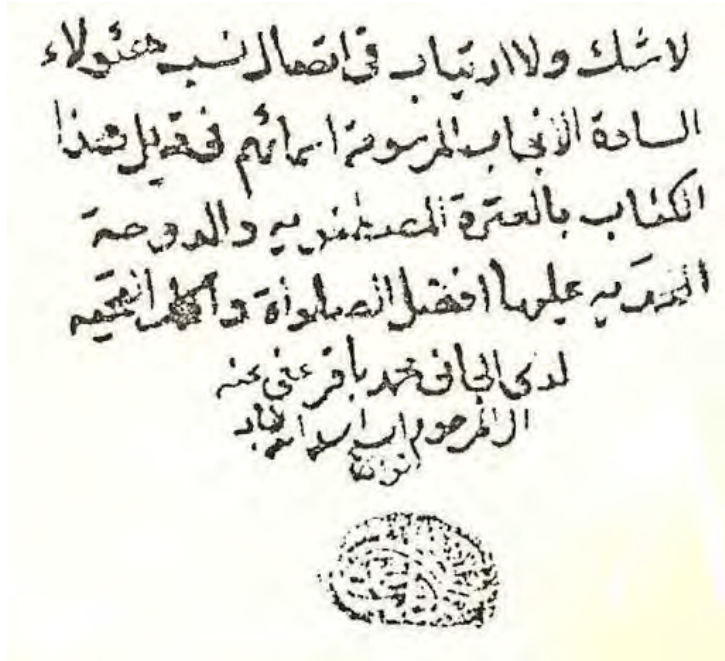 لا شك ولا ارتياب في اتصال نسب هئولاء
السادة الأنجاب المرسومة اسمائهم في ذيل هذا
الكتاب بالعترة المصطفويه والدوحة
المحمديه عليها افضل الصلوأة و التحيه
لدى الجاني محمد باقر عفى عنه
المرحوم